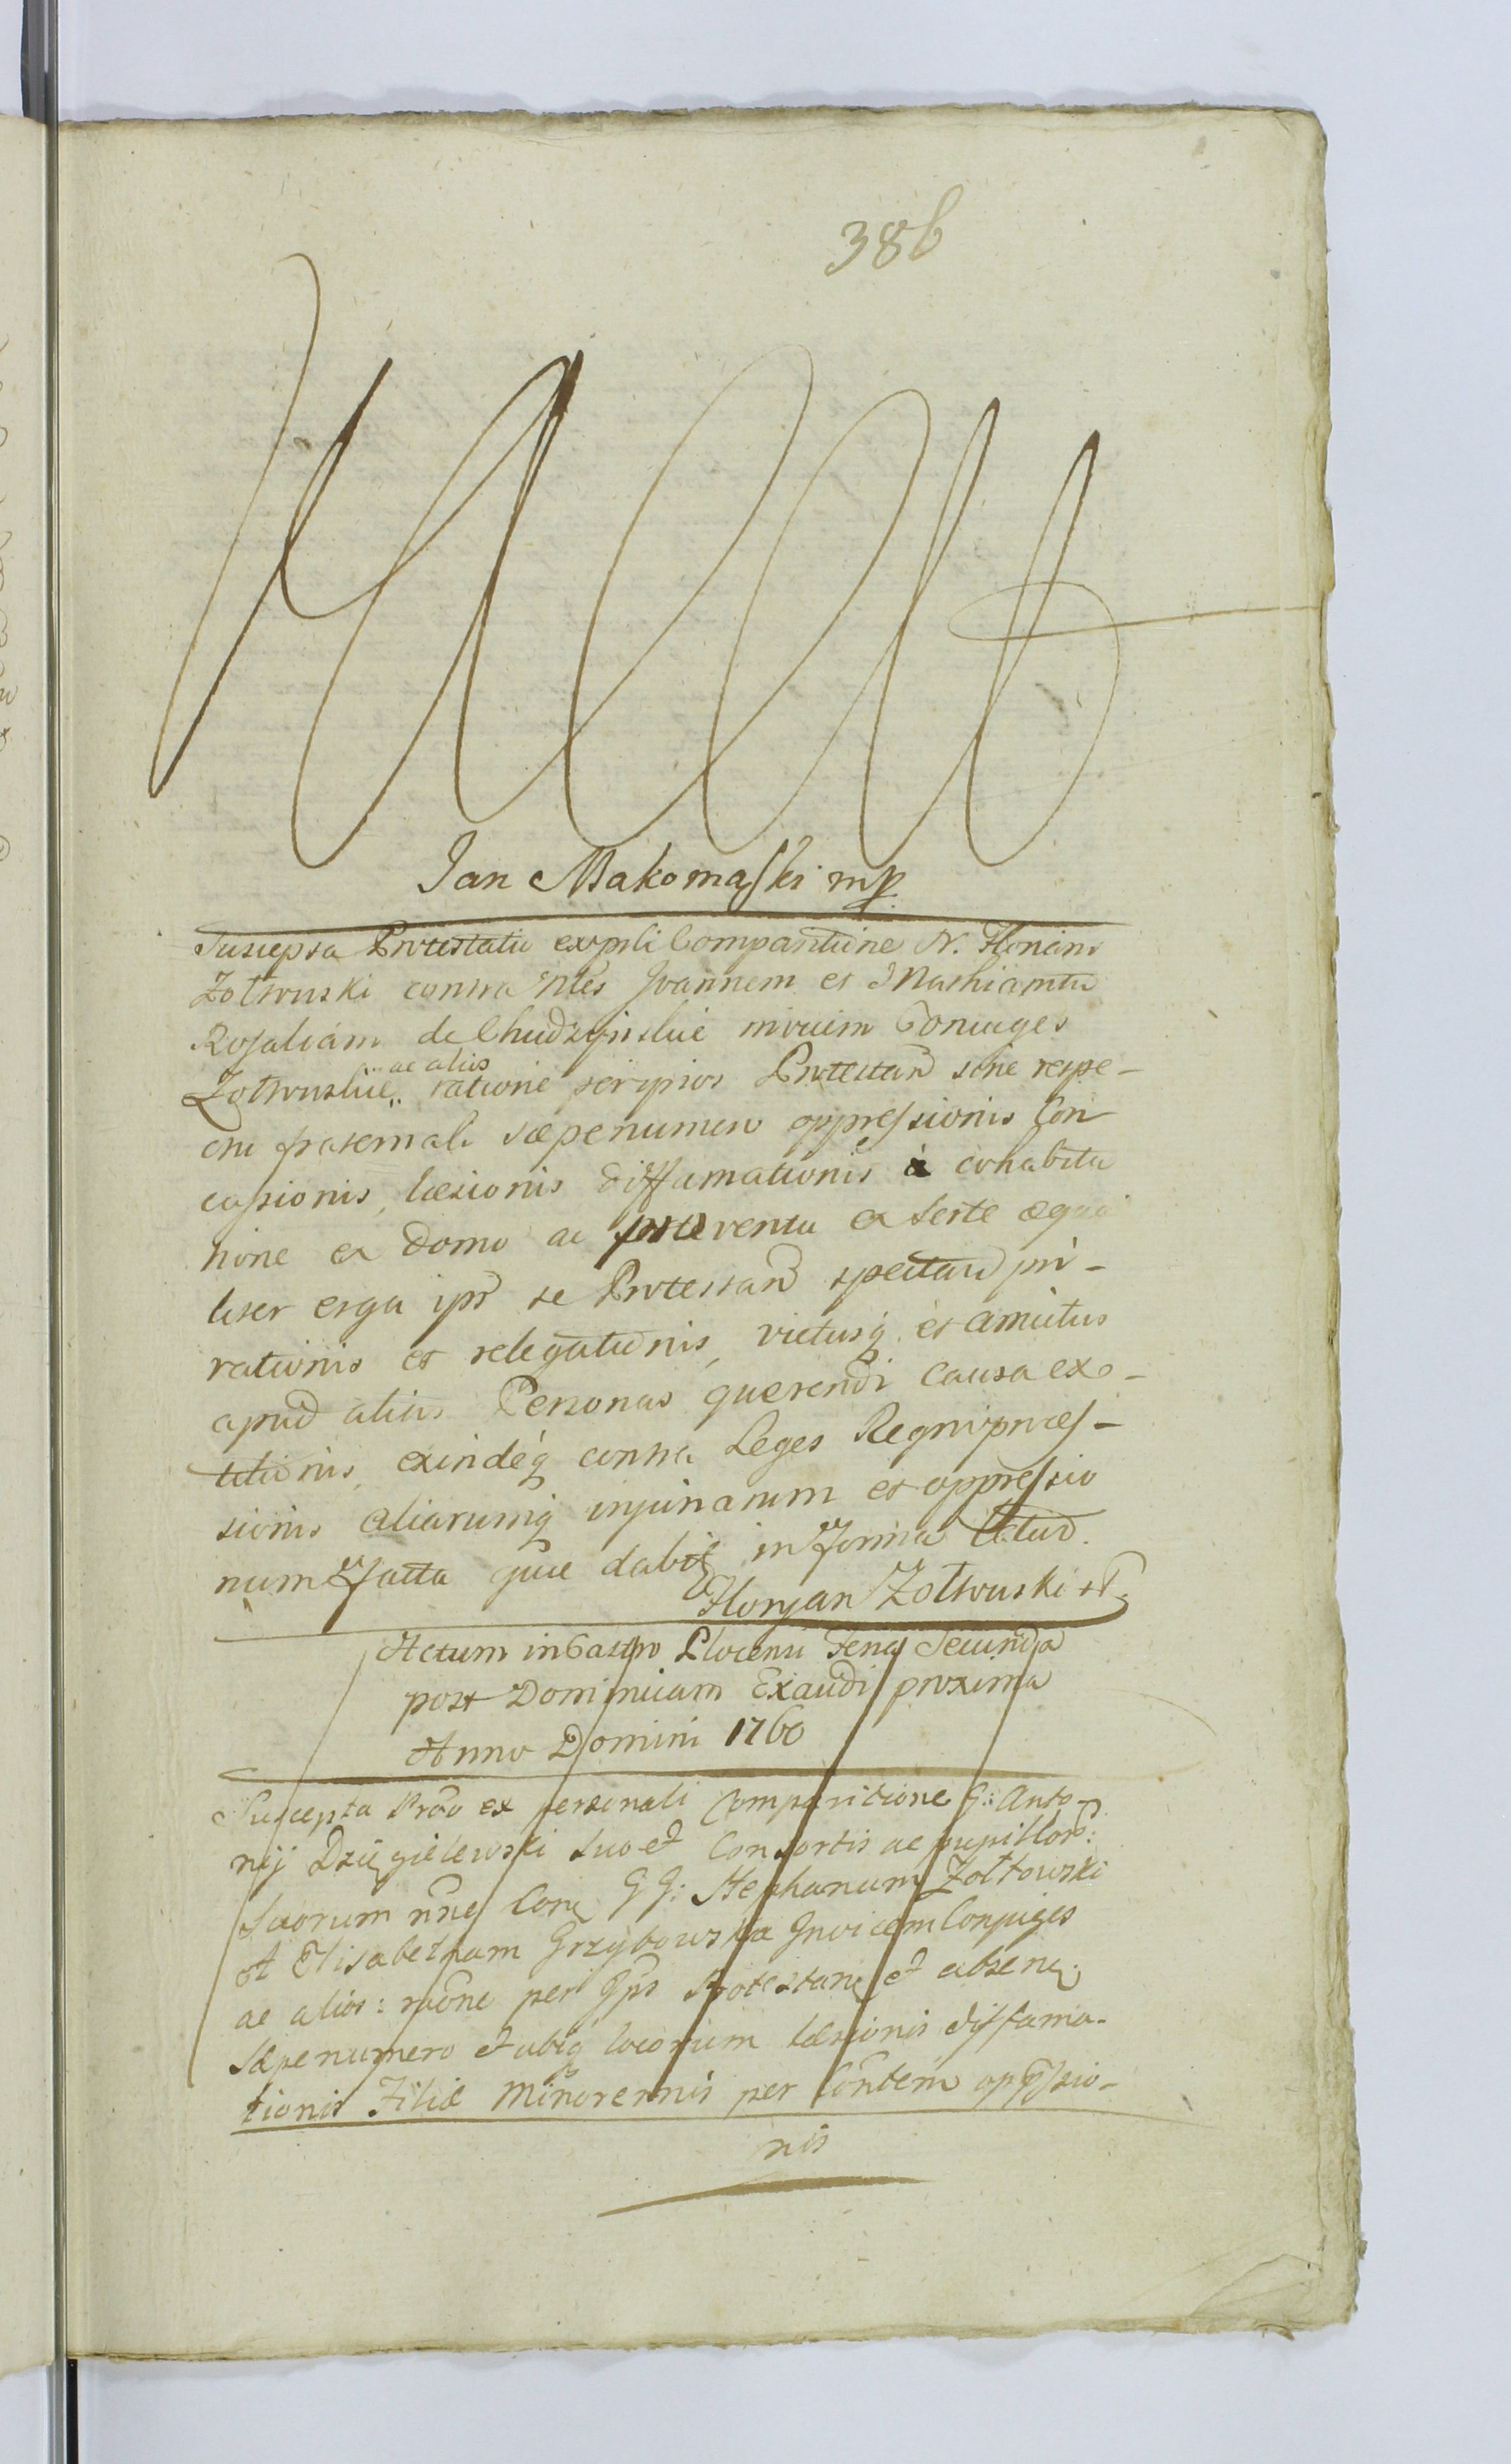 386
Jan Makomaski mp
Suscepta Protestatio ex prli Comparitione N. Floriani
Zołtowski contra Nles Joannem et Mathiamtu
Rosaliam de Chudzyńskie invicim Coniuges
Zołtowskie, ratione per ipsos Protestand sine respe-
.. ac alios
ctu fraternali sæpenumero oppressionis Con
cussionis, læsionis diffamationis a cohabita
tione ex domo ac proventu ex serte æqua
liter erga ips se Protestand spectand pri-
vationis et relegationis, victusq et amictus
apud alias Personas querendi causa exo-
titionis, exindeq contra Leges Regni præs-
sionis aliarumq injuriarum et oppressio
num Facta quæ dabit in Forma Latiud.
Floryan Zołtowski
Actum in Castro Plocensi Feria Secunda
post Dominicam Exaudi proxima
Anno Domini 1760
Suscepta Prõo ex personali Comparitione G: Anto-
nij Dzięgielewski suo et Consortis ac pupillorõ:
suorum nne Con GG: Stephanum Zołtowski
et Elisabetham Grzybowska Invicem Conjuges
ac alios: rãone per Ips Protestan et absen
sæpenumero et ubiq locorum læsionis diffama-
tionis Filiæ Minorennis per Contem oppssio-
nis